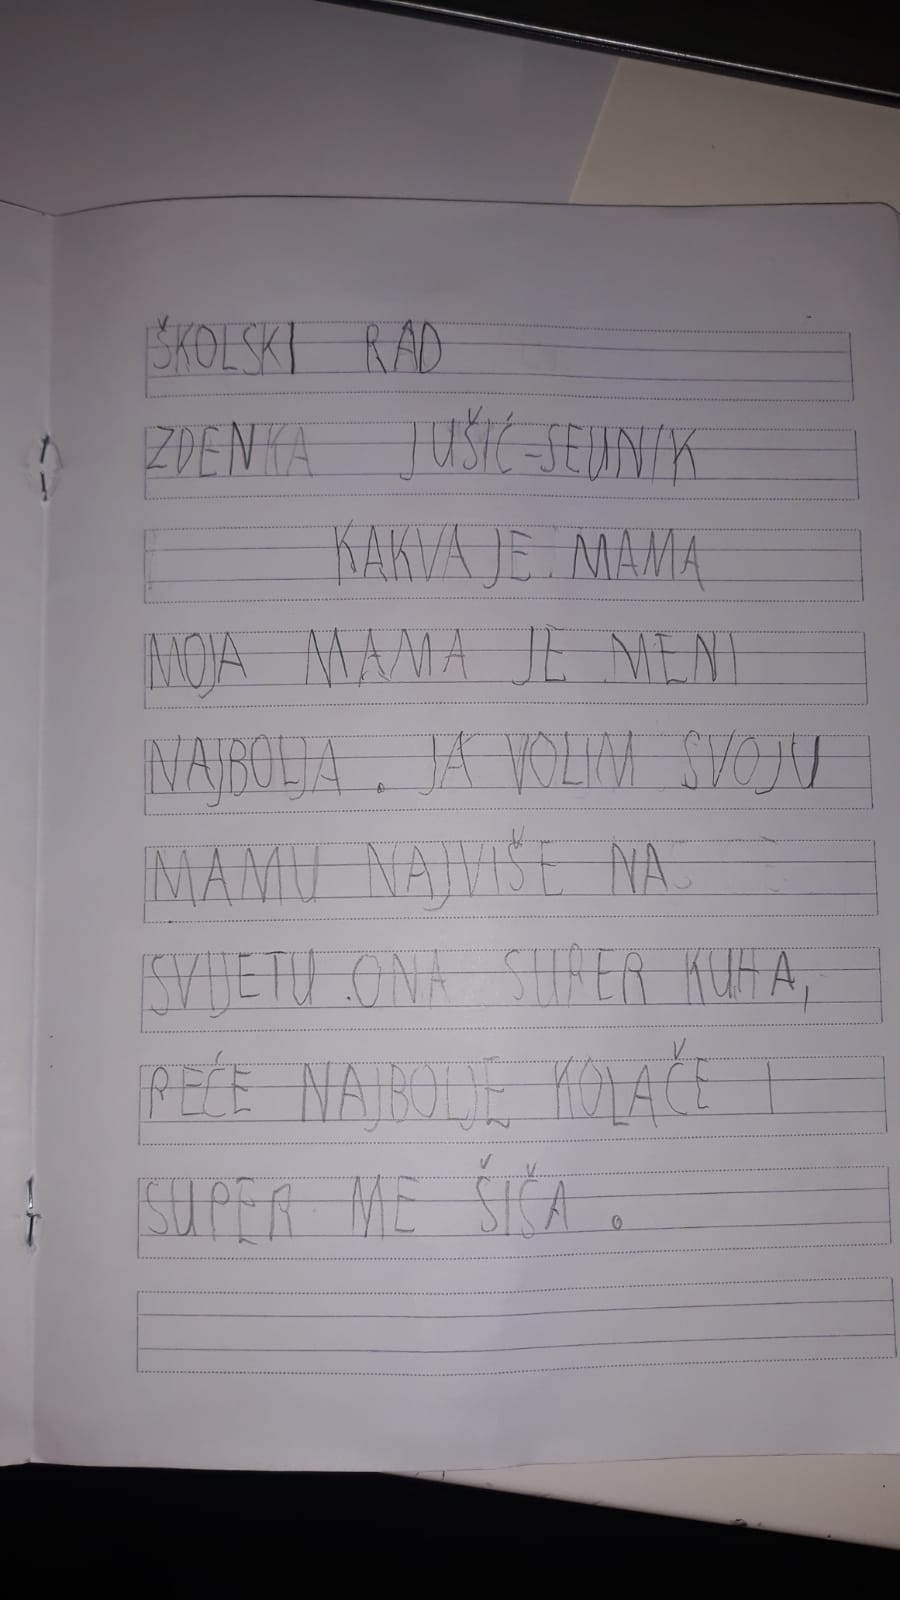 ŠKOLSKI RAD
ZDENKA JUŠIĆ-SEUNIK
KAKVA JE MAMA
MOJA MAMA JE MENI
NAJBOLJA. JA VOLIM SVOJU
MAMU NAJVIŠE NA
SVIJETU.ONA SUPER KUHA,
PEĆE NAJBOLJE KOLAČE I
SUPER ME ŠIŠA.